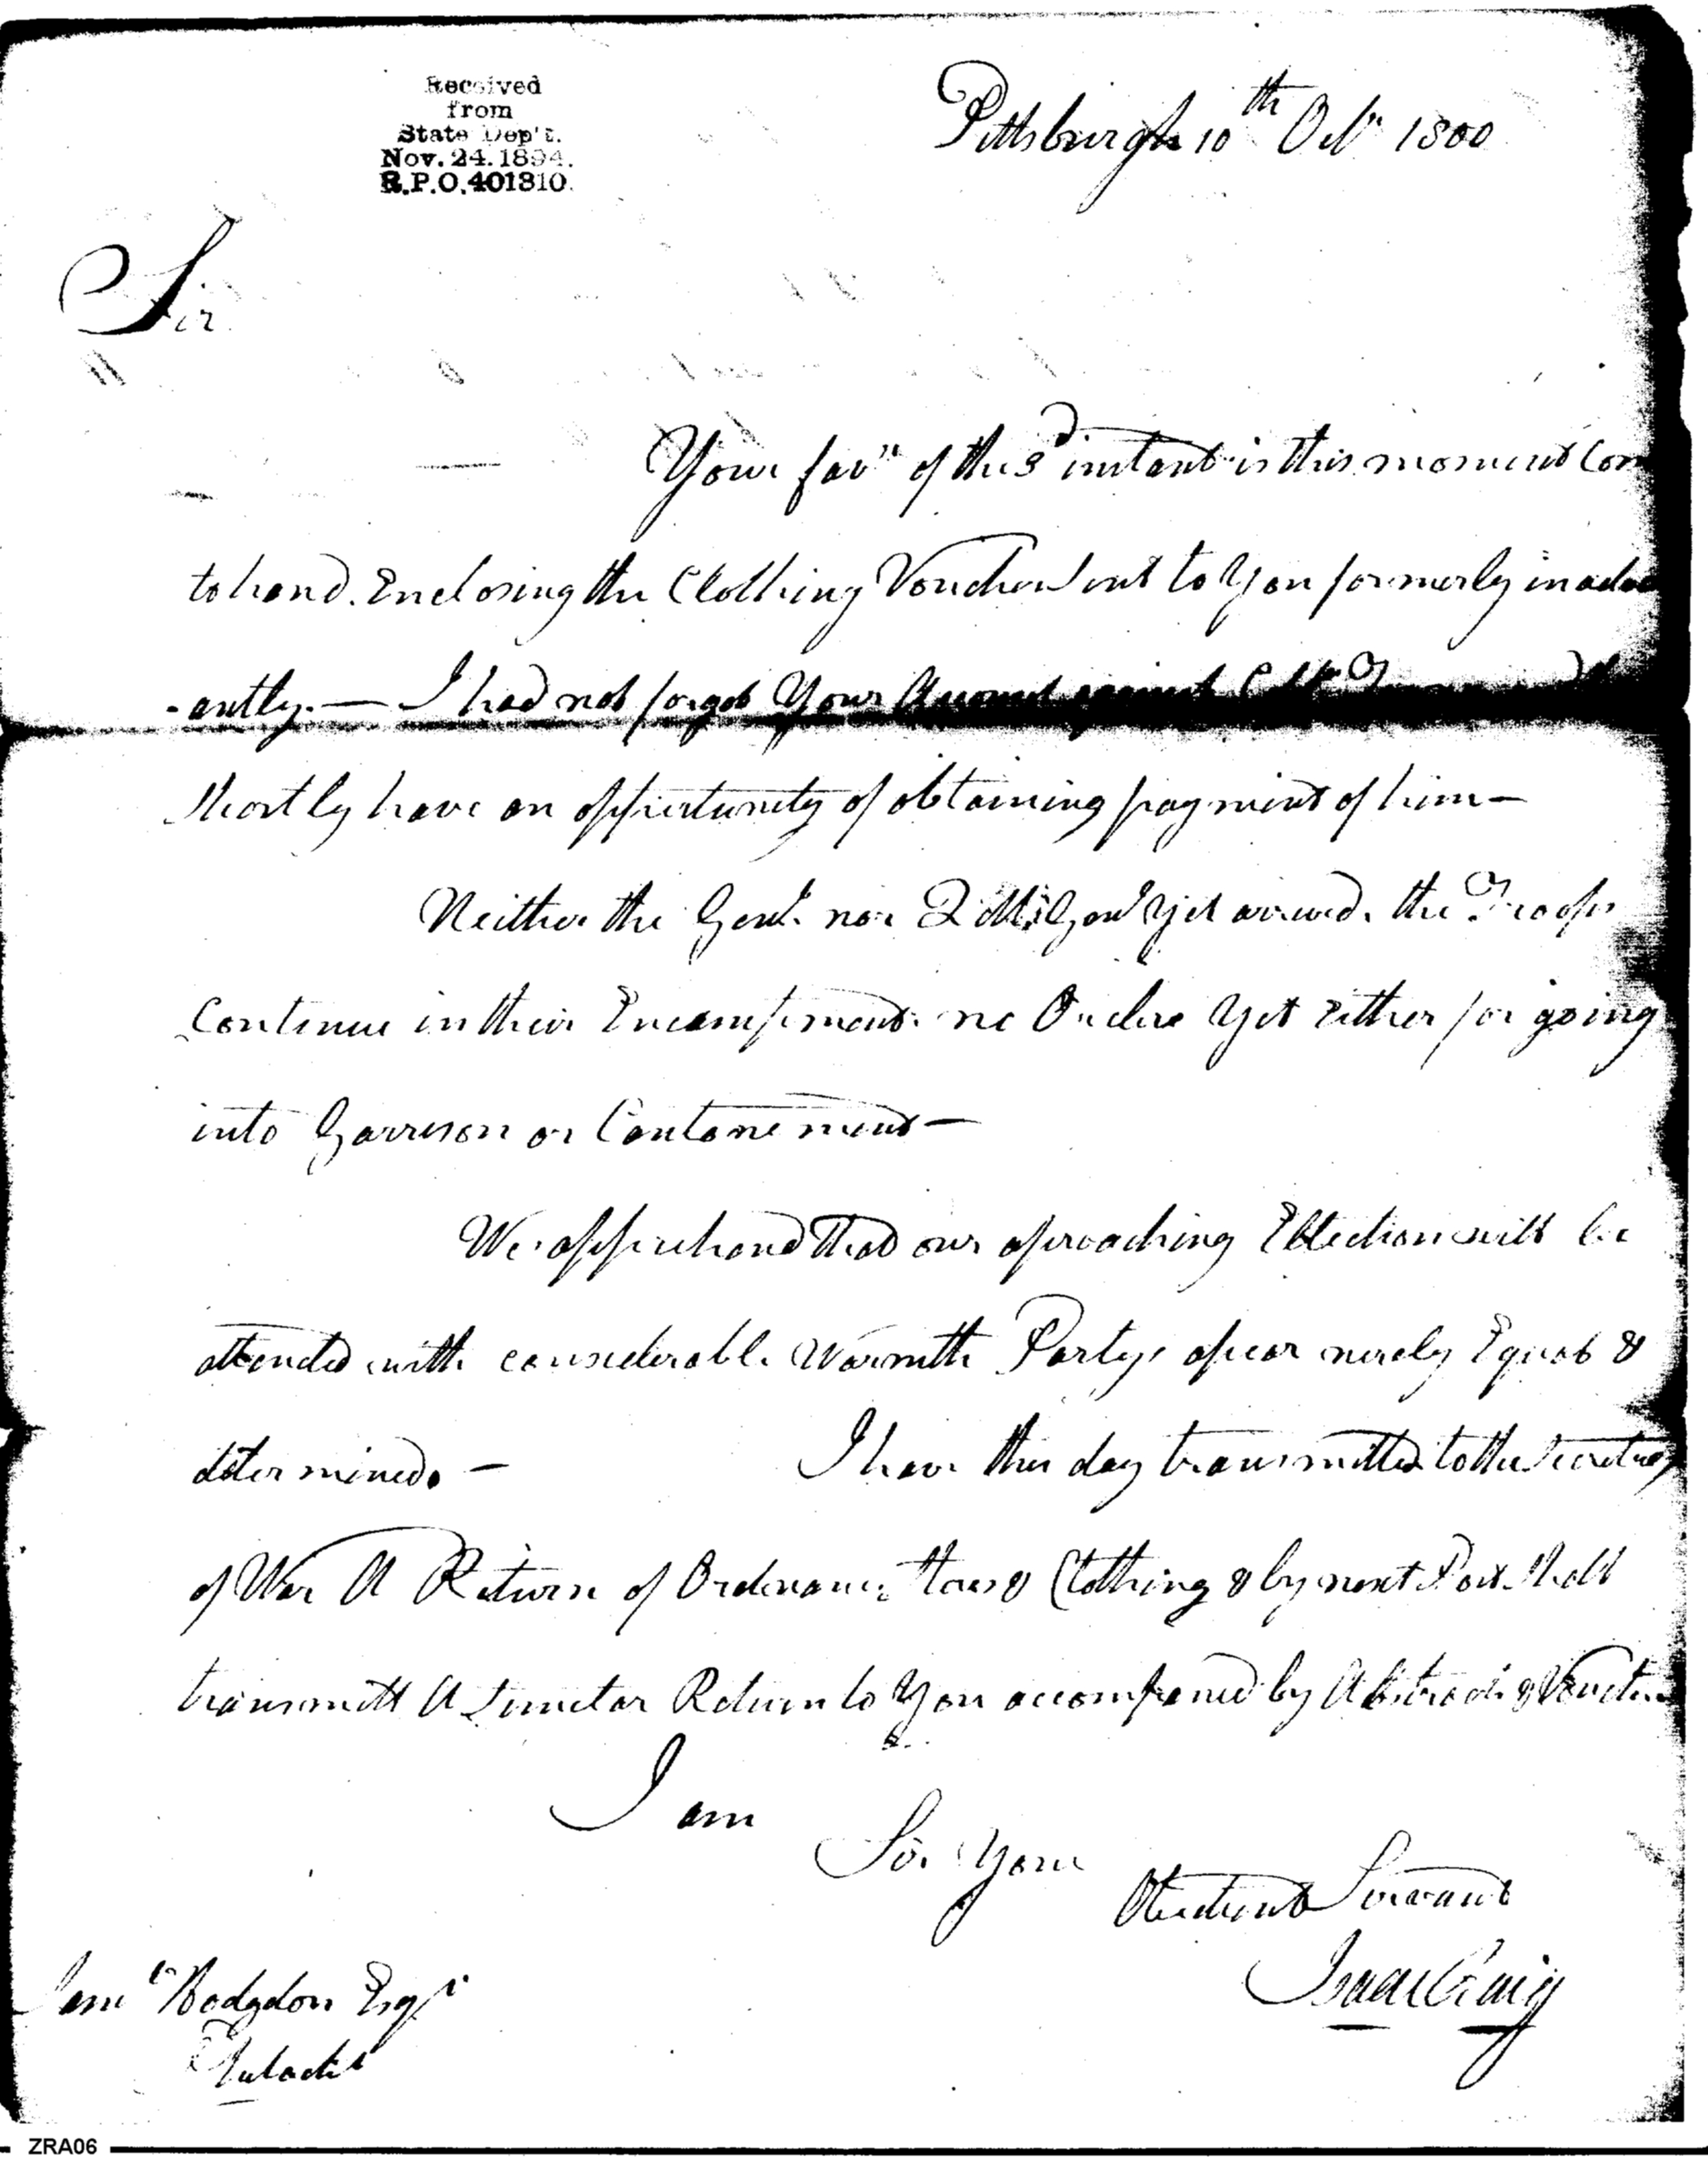 Received
from
State Dep't.
Nov. 24. 1894.
R.P.O. 401310.
Pittsburgh 10th Octr 1800
Sir
Your favr of the 3d instant is this moment Com
to hand. Enclosing the Clothing Voucher sent to You formerly inadv
-antly. — I had not forgot Your Account against
Shortly have an oppertunity of obtaining payment of him —
Neither the Genl. nor Q M Genl Yet arrived. the Troops
Continue in their Encampment. no Orders Yet Either for going
into Garrison or Cantonement —
We apprehend that our aproaching Ellection will be
attended with considerable Warmth Partys apear nearly Equal &
determined. — I have this day transmitted to the Secretary
of War A Return of Ordenance Stores & Clothing & by next Post shall
transmitt A Similar Return to You accompaned by Abstracts & Vouchers
I am
Sir Your
Obedient Servant
Isaac Craig
Saml Hodgdon Esqr
ZRA06